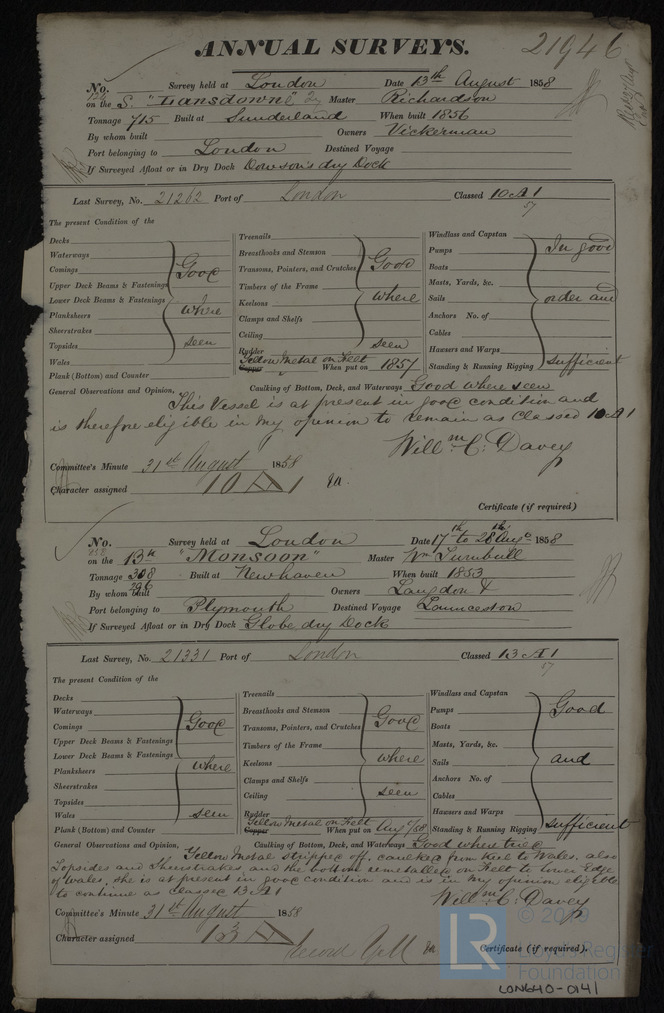 ANNUAL SURVEYS.
21946
No. Survey held at London Date 13th August 1858
on the S. "Lansdowne" Master Richardson
Tonnage 715 Built at Sunderland When built 1856
By whom built Owners Vickerman
Port belonging to London Destined Voyage
If Surveyed Afloat or in Dry Dock Dowson's dry Dock
Last Survey, No. 21262 Port of London Classed 10 A 1
57
The present Condition of the
Decks
Waterways
Comings
Upper Deck Beams & Fastenings
Lower Deck Beams & Fastenings
Planksheers
Sheerstrakes
Topsides
Wales
Plank (Bottom) and Counter
Good where seen
Treenails
Breasthooks and Stemson
Transoms, Pointers, and Crutches
Timbers of the Frame
Keelsons
Clamps and Shelfs
Ceiling
Rudder
Good where seen
Copper Yellow Metal on Felt When put on 1857
Windlass and Capstan
Pumps
Boats
Masts, Yards, &c.
Sails
Anchors No. of
Cables
Hawsers and Warps
Standing & Running Rigging
In good order and sufficient
General Observations and Opinion, Caulking of Bottom, Deck, and Waterways Good where seen
This Vessel is at present in good condition and
is therefore eligible in my opinion to remain as Classed 10 A 1
Willm. C. Davey
Committee's Minute 31st August 1858
Character assigned 10 A 1
Certificate (if required)
No. Survey held at London Date 17th to 28th Augt 1858
on the Bk "Monsoon" Master Wm Turnbull
Tonnage 308 Built at Newhaven When built 1853
296
By whom built Owners Langdon &
Port belonging to Plymouth Destined Voyage Launceston
If Surveyed Afloat or in Dry Dock Globe dry Dock
Last Survey, No. 21331 Port of London Classed 13 A 1
57
The present Condition of the
Decks
Waterways
Comings
Upper Deck Beams & Fastenings
Lower Deck Beams & Fastenings
Planksheers
Sheerstrakes
Topsides
Wales
Plank (Bottom) and Counter
Good where seen
Treenails
Breasthooks and Stemson
Transoms, Pointers, and Crutches
Timbers of the Frame
Keelsons
Clamps and Shelfs
Ceiling
Rudder
Good where seen
Copper Yellow Metal on Felt When put on Augt/58
Windlass and Capstan
Pumps
Boats
Masts, Yards, &c.
Sails
Anchors No. of
Cables
Hawsers and Warps
Standing & Running Rigging
Good and sufficient
General Observations and Opinion, Caulking of Bottom, Deck, and Waterways Good where tried
Yellow Metal stripped off, caulked from Keel to Wales, also
Topsides and Sheerstrakes and the bottom remetalled on Felt to lower Edge
of Wales, she is at present in good condition and is in my opinion eligible
to continue as Classed 13 A 1
Willm C. Davey
Committee's Minute 31st August 1858
Character assigned 13 A 1
record
Certificate (if required)
LR
© 2019
Lloyd's Register
Foundation
LON640-0141